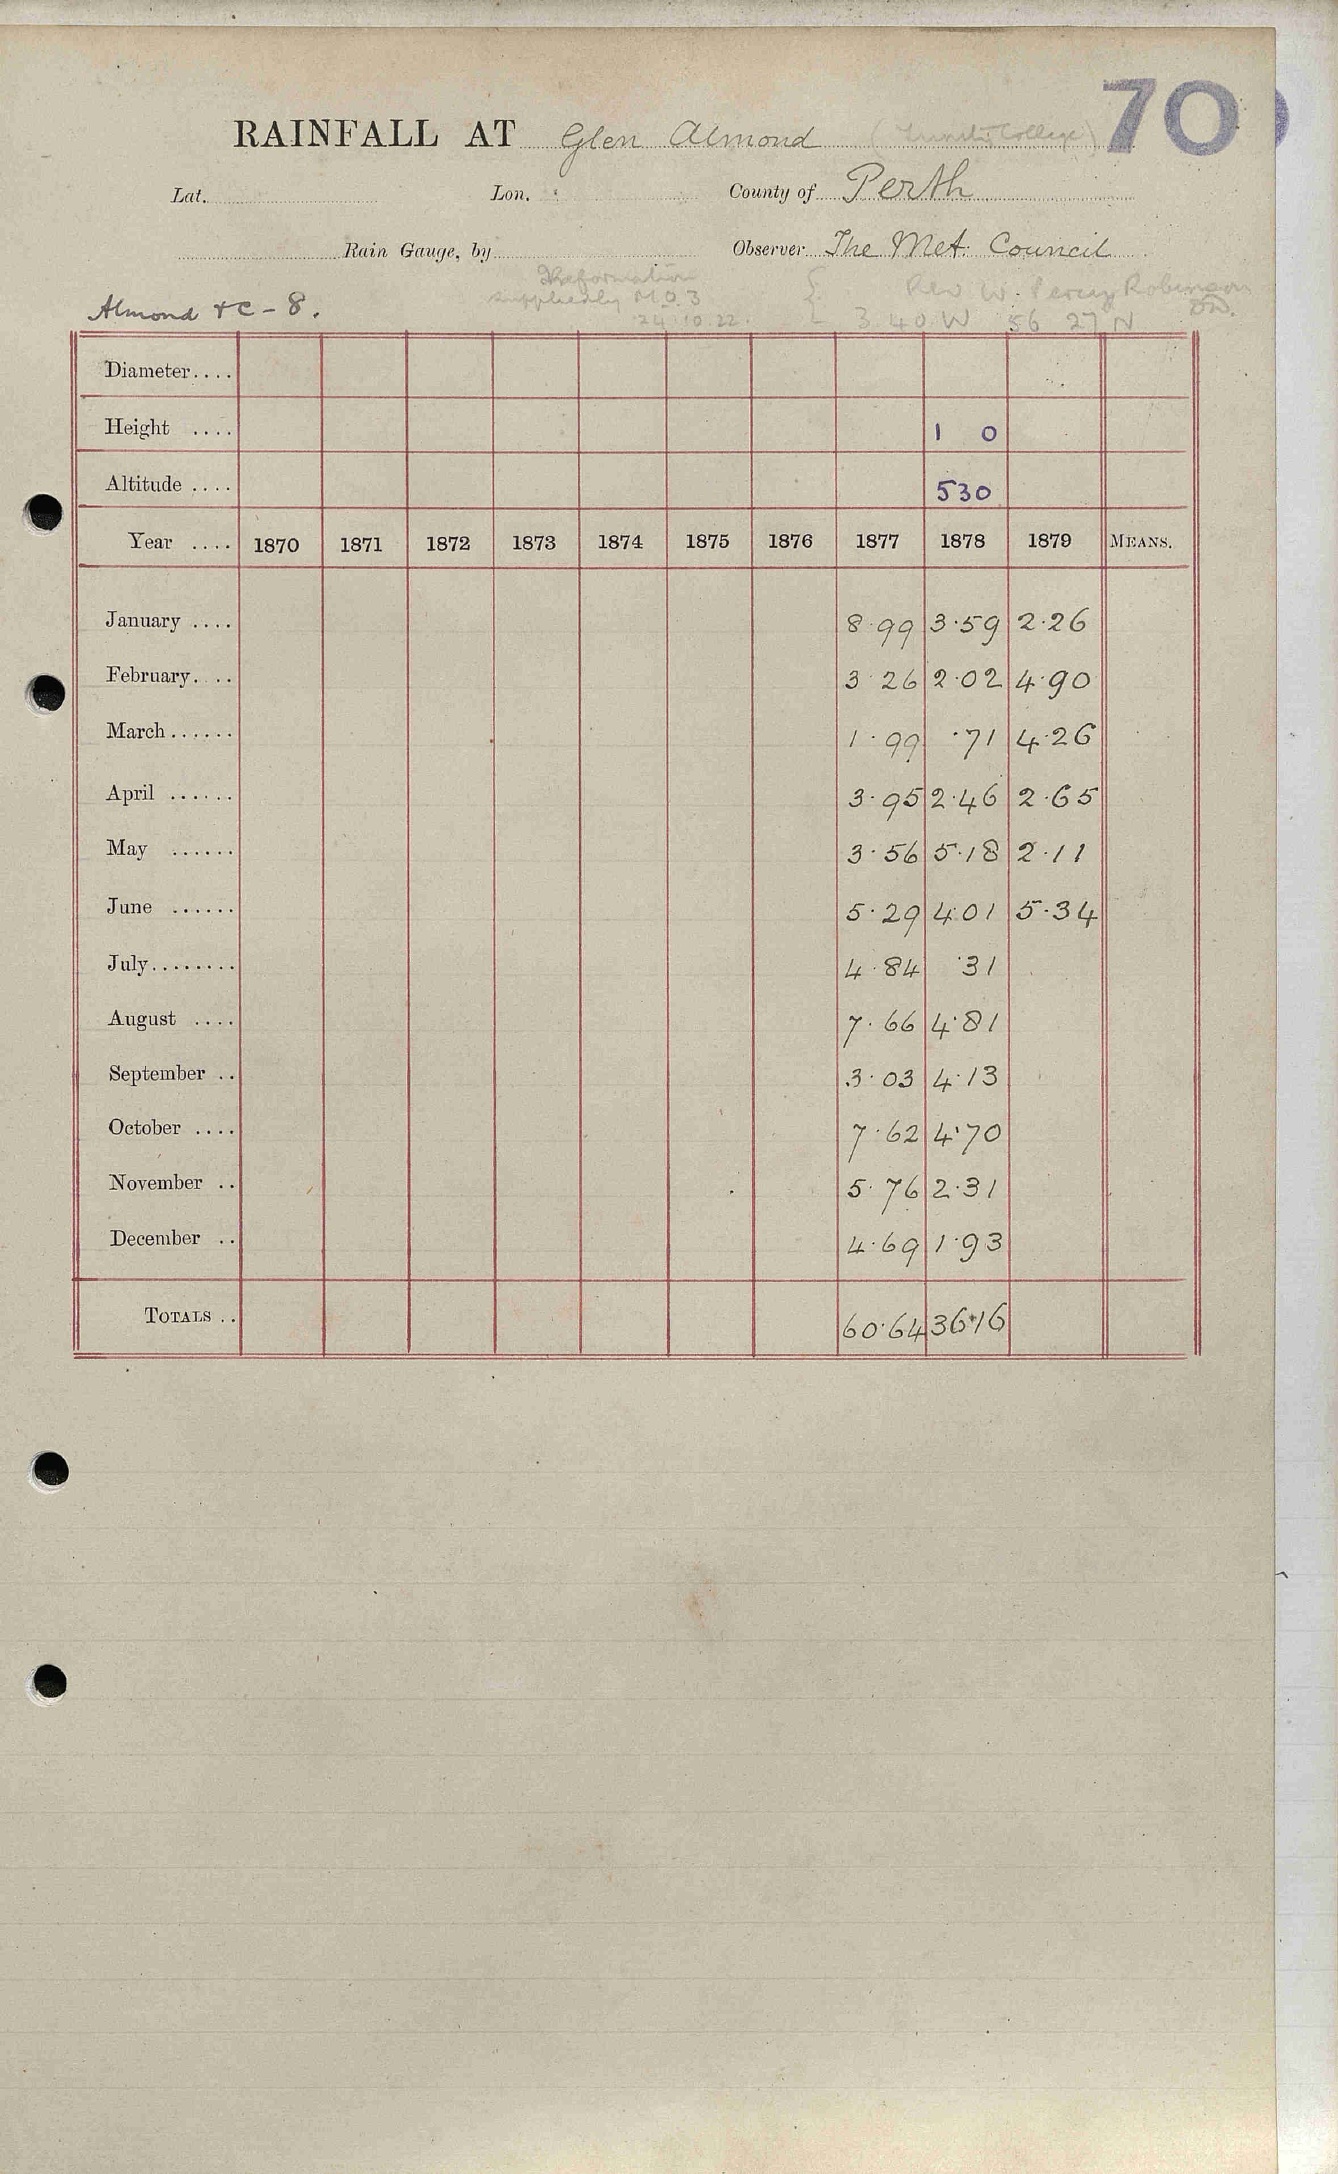 70
RAINFALL AT Glen Almond (Trinity College)
Lat. Lon. County of Perth
Rain Gauge, by Observer The Met. Council
Information
supplied by M.O.3 { Rev W. Percy Robinson
24.10.22. 3 40 W 56 27 N DD.
Almond TC - 8.
Diameter....
Height .... 1 0
Altitude .... 530
Year .... 1870 1871 1872 1873 1874 1875 1876 1877 1878 1879 MEANS.
January .... 8.99 3.59 2.26
February.... 3.26 2.02 4.90
March...... 1.99 .71 4.26
April ...... 3.95 2.46 2.65
May ...... 3.56 5.18 2.11
June ...... 5.29 4.01 5.34
July........ 4.84 .31
August .... 7.66 4.81
September .. 3.03 4.13
October .... 7.62 4.70
November .. 5.76 2.31
December .. 4.69 1.93
TOTALS .. 60.64 36.16